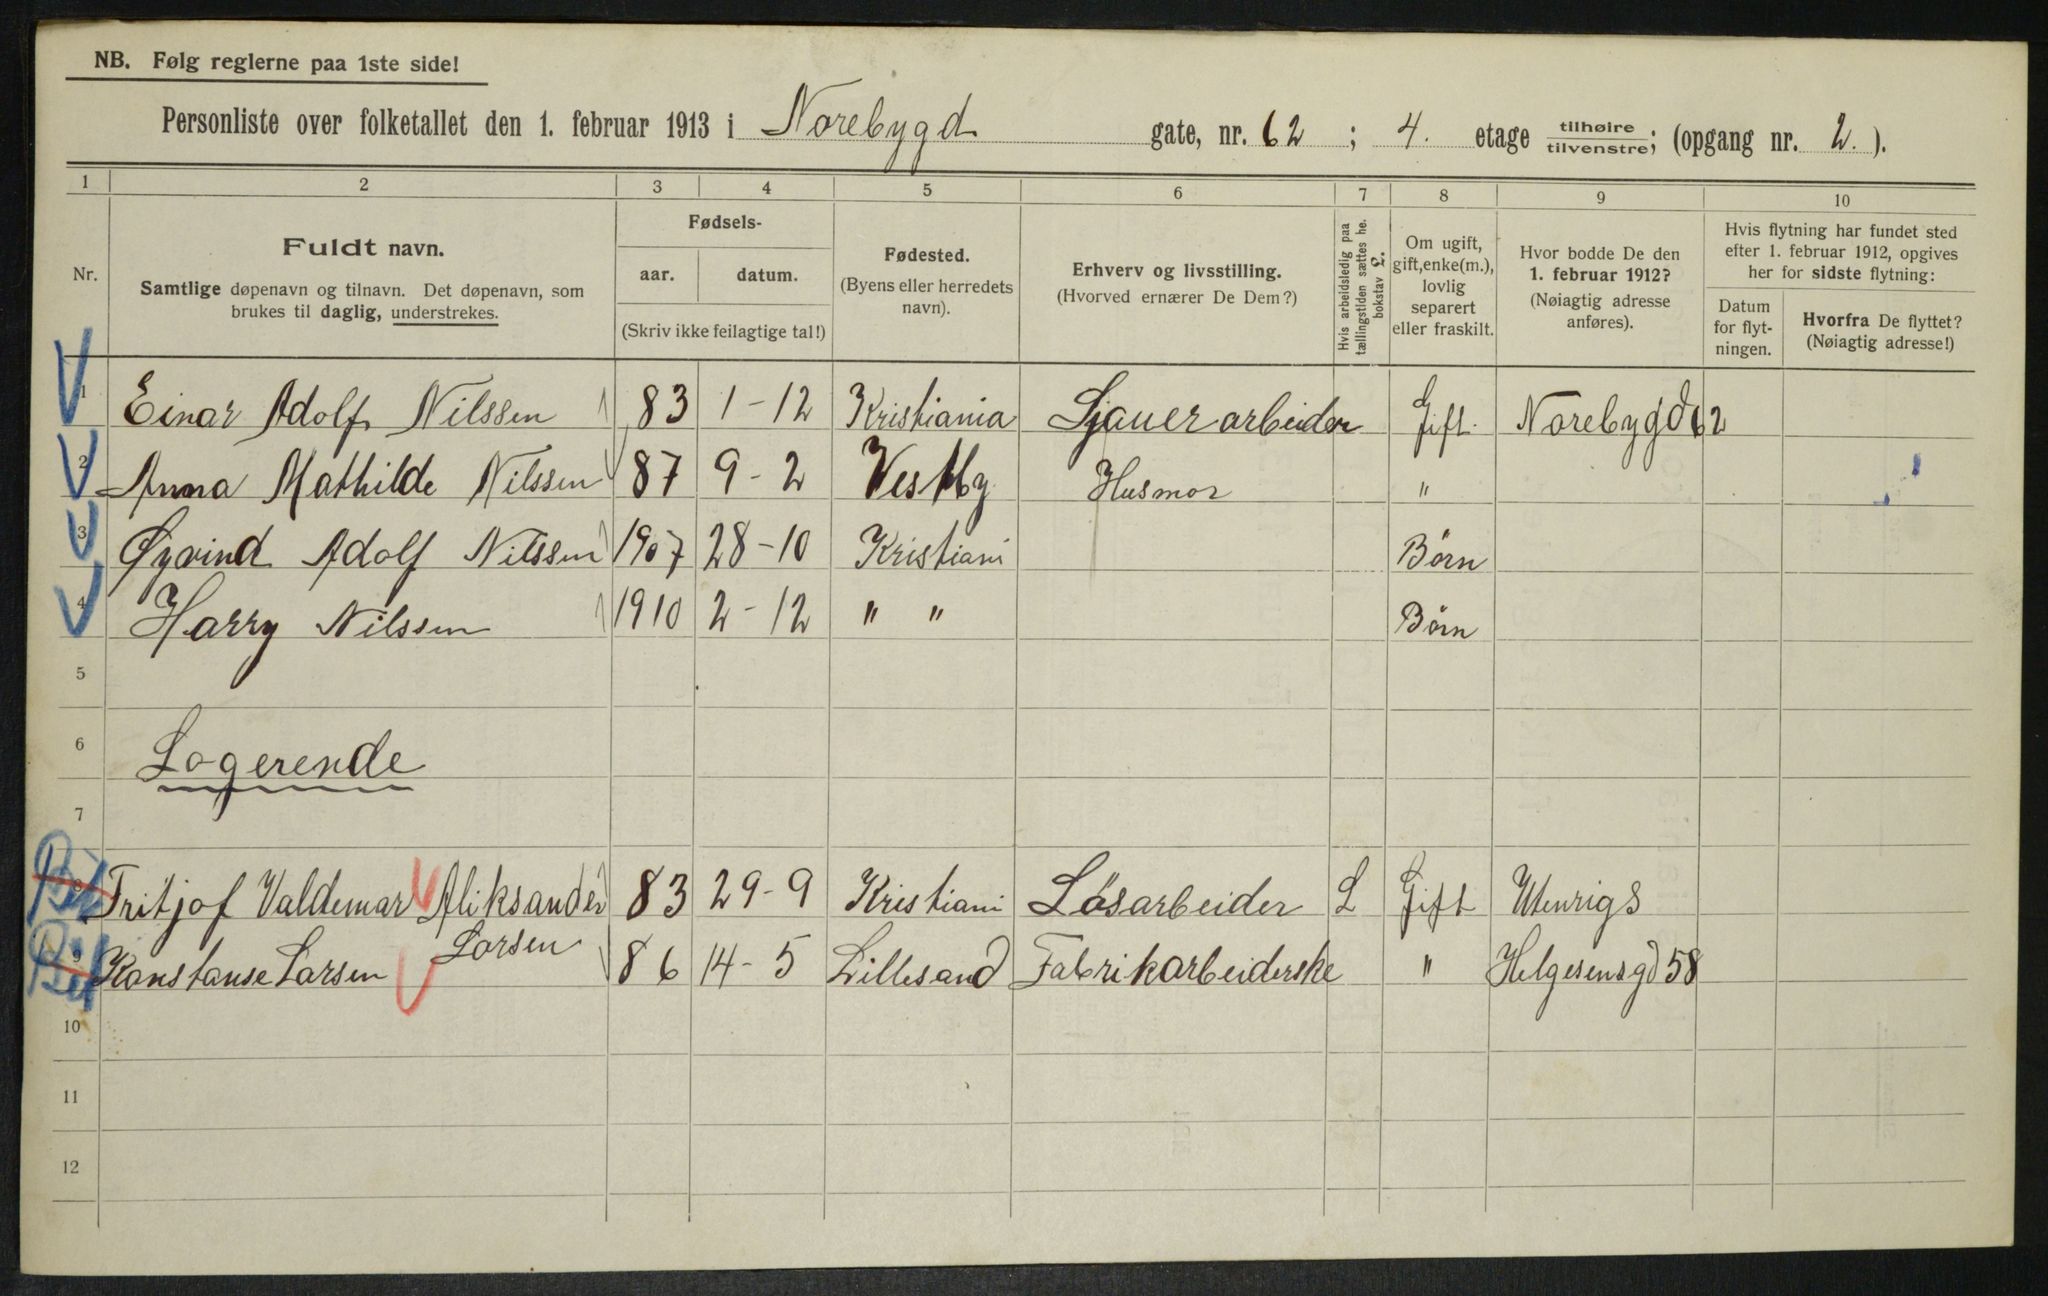 NB. Følg reglerne paa 1ste side!
Personliste over folketallet den 1. februar 1913 i Norebygd gate, nr. 62; 4. etage tilhøire tilvenstre; (opgang nr. 2.).
1 2 3 4 5 6 7 8 9 10
Nr.
Fuldt navn.
Samtlige døpenavn og tilnavn. Det døpenavn, som
brukes til daglig, understrekes.
Fødsels-
aar. datum.
(Skriv ikke feilagtige tal!)
Fødested.
(Byens eller herredets
navn).
Erhverv og livsstilling.
(Hvorved ernærer De Dem?)
Hvis arbeidsledig paa
tællingstiden sættes he.
bokstav L.
Om ugift,
gift, enke(m.),
lovlig
separert
eller fraskilt.
Hvor bodde De den
1. februar 1912?
(Nøiagtig adresse
anføres).
Hvis flytning har fundet sted
efter 1. februar 1912, opgives
her for sidste flytning:
Datum
for flyt-
ningen.
Hvorfra De flyttet?
(Nøiagtig adresse!)
1 Einar Adolf Nilssen 83 1-12 Kristiania Sjauerarbeider Gift. Norebygd 62
2 Anna Mathilde Nilssen 87 9-2 Vestby Husmor "
3 Øyvind Adolf Nilssen 1907 28-10 Kristiani Børn
4 Harry Nilssen 1910 2-12 " " Børn
5
6 Logerende
7
8 Fritjof Valdemar Aliksander 83 29-9 Kristiani Løsarbeider L Gift Utenrigs
Larsen
9 Konstanse Larsen 86 14-5 Lillesand Fabrikarbeiderske " Helgesensgd 58
10
11
12